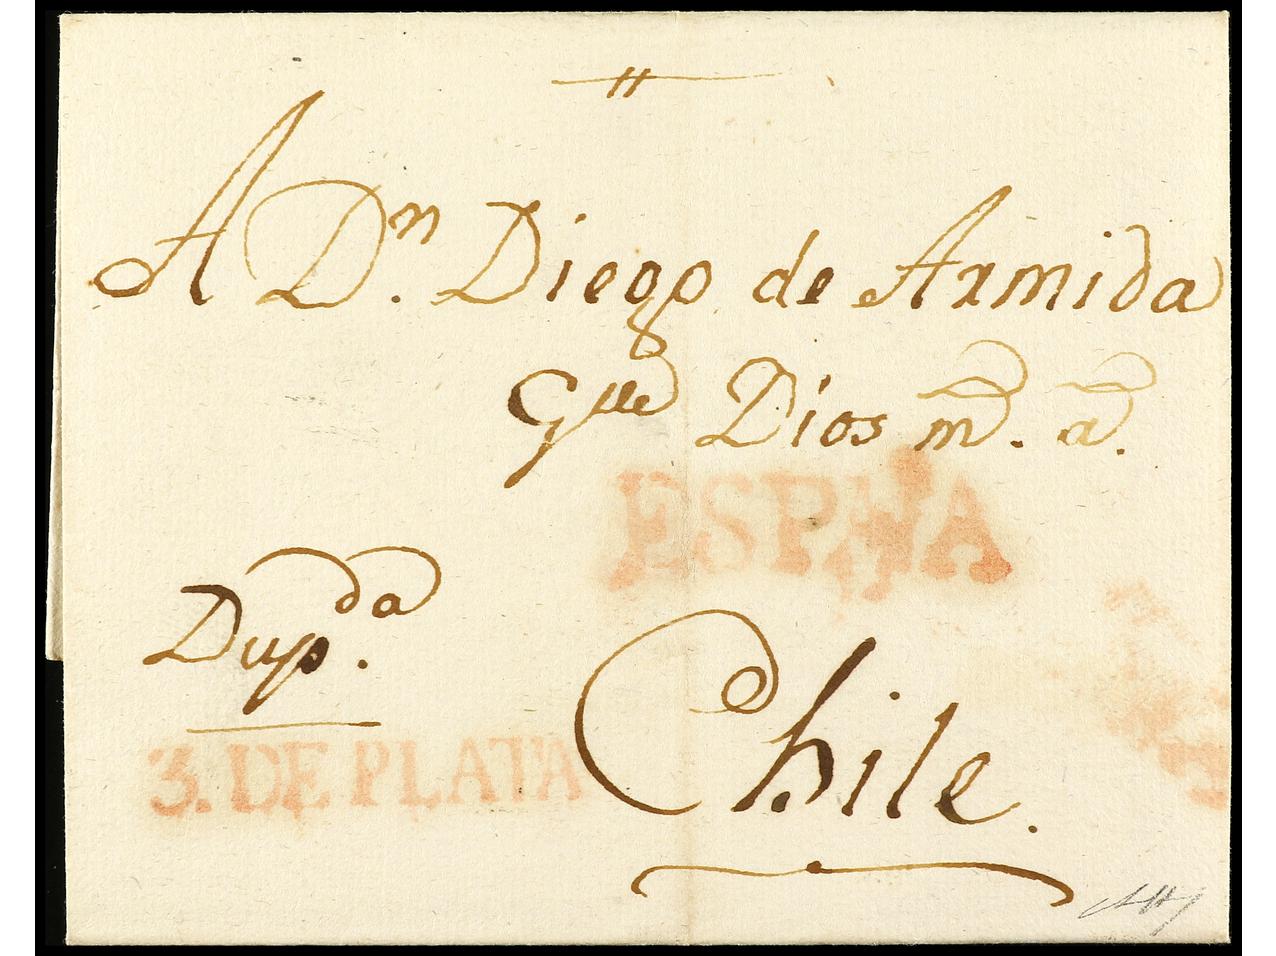 A Dn. Diego de Armida
Gue Dios ms. as.
ESPAÑA
Dupda.
3. DE PLATA
Chile.